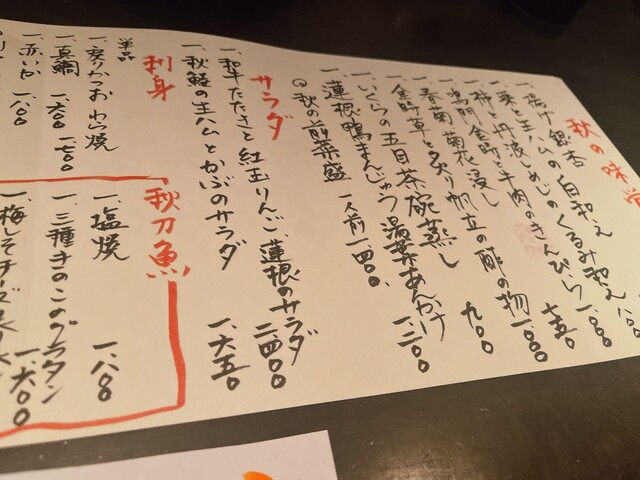 秋の味覚
一、揚げ銀杏
一、栗と生ハムの白和え
一、柿と丹波しめじのくるみ和え 一、000
一、鳴門金時と牛肉のきんぴら 七五0
一、春菊菊花浸し
一、金時草と炙り帆立の酢の物 一、000
一、いくらの五目茶碗蒸し 九00
一、蓮根鴨まんじゅう湯葉あんかけ 一、二00
◎秋の前菜盛 一人前 一、四00
サラダ
一、和牛たたきと紅玉りんご、蓮根のサラダ 二、四00
一、秋鮭の生ハムとかぶのサラダ 一、六五0
刺身
単品
一、戻りかつおわら焼 一、七00
一、真鯛 一、六00
一、赤いか 一、八00
秋刀魚
一、塩焼 一、八00
一、三種きのこのグラタン 一、六00
一、梅しそチーズ